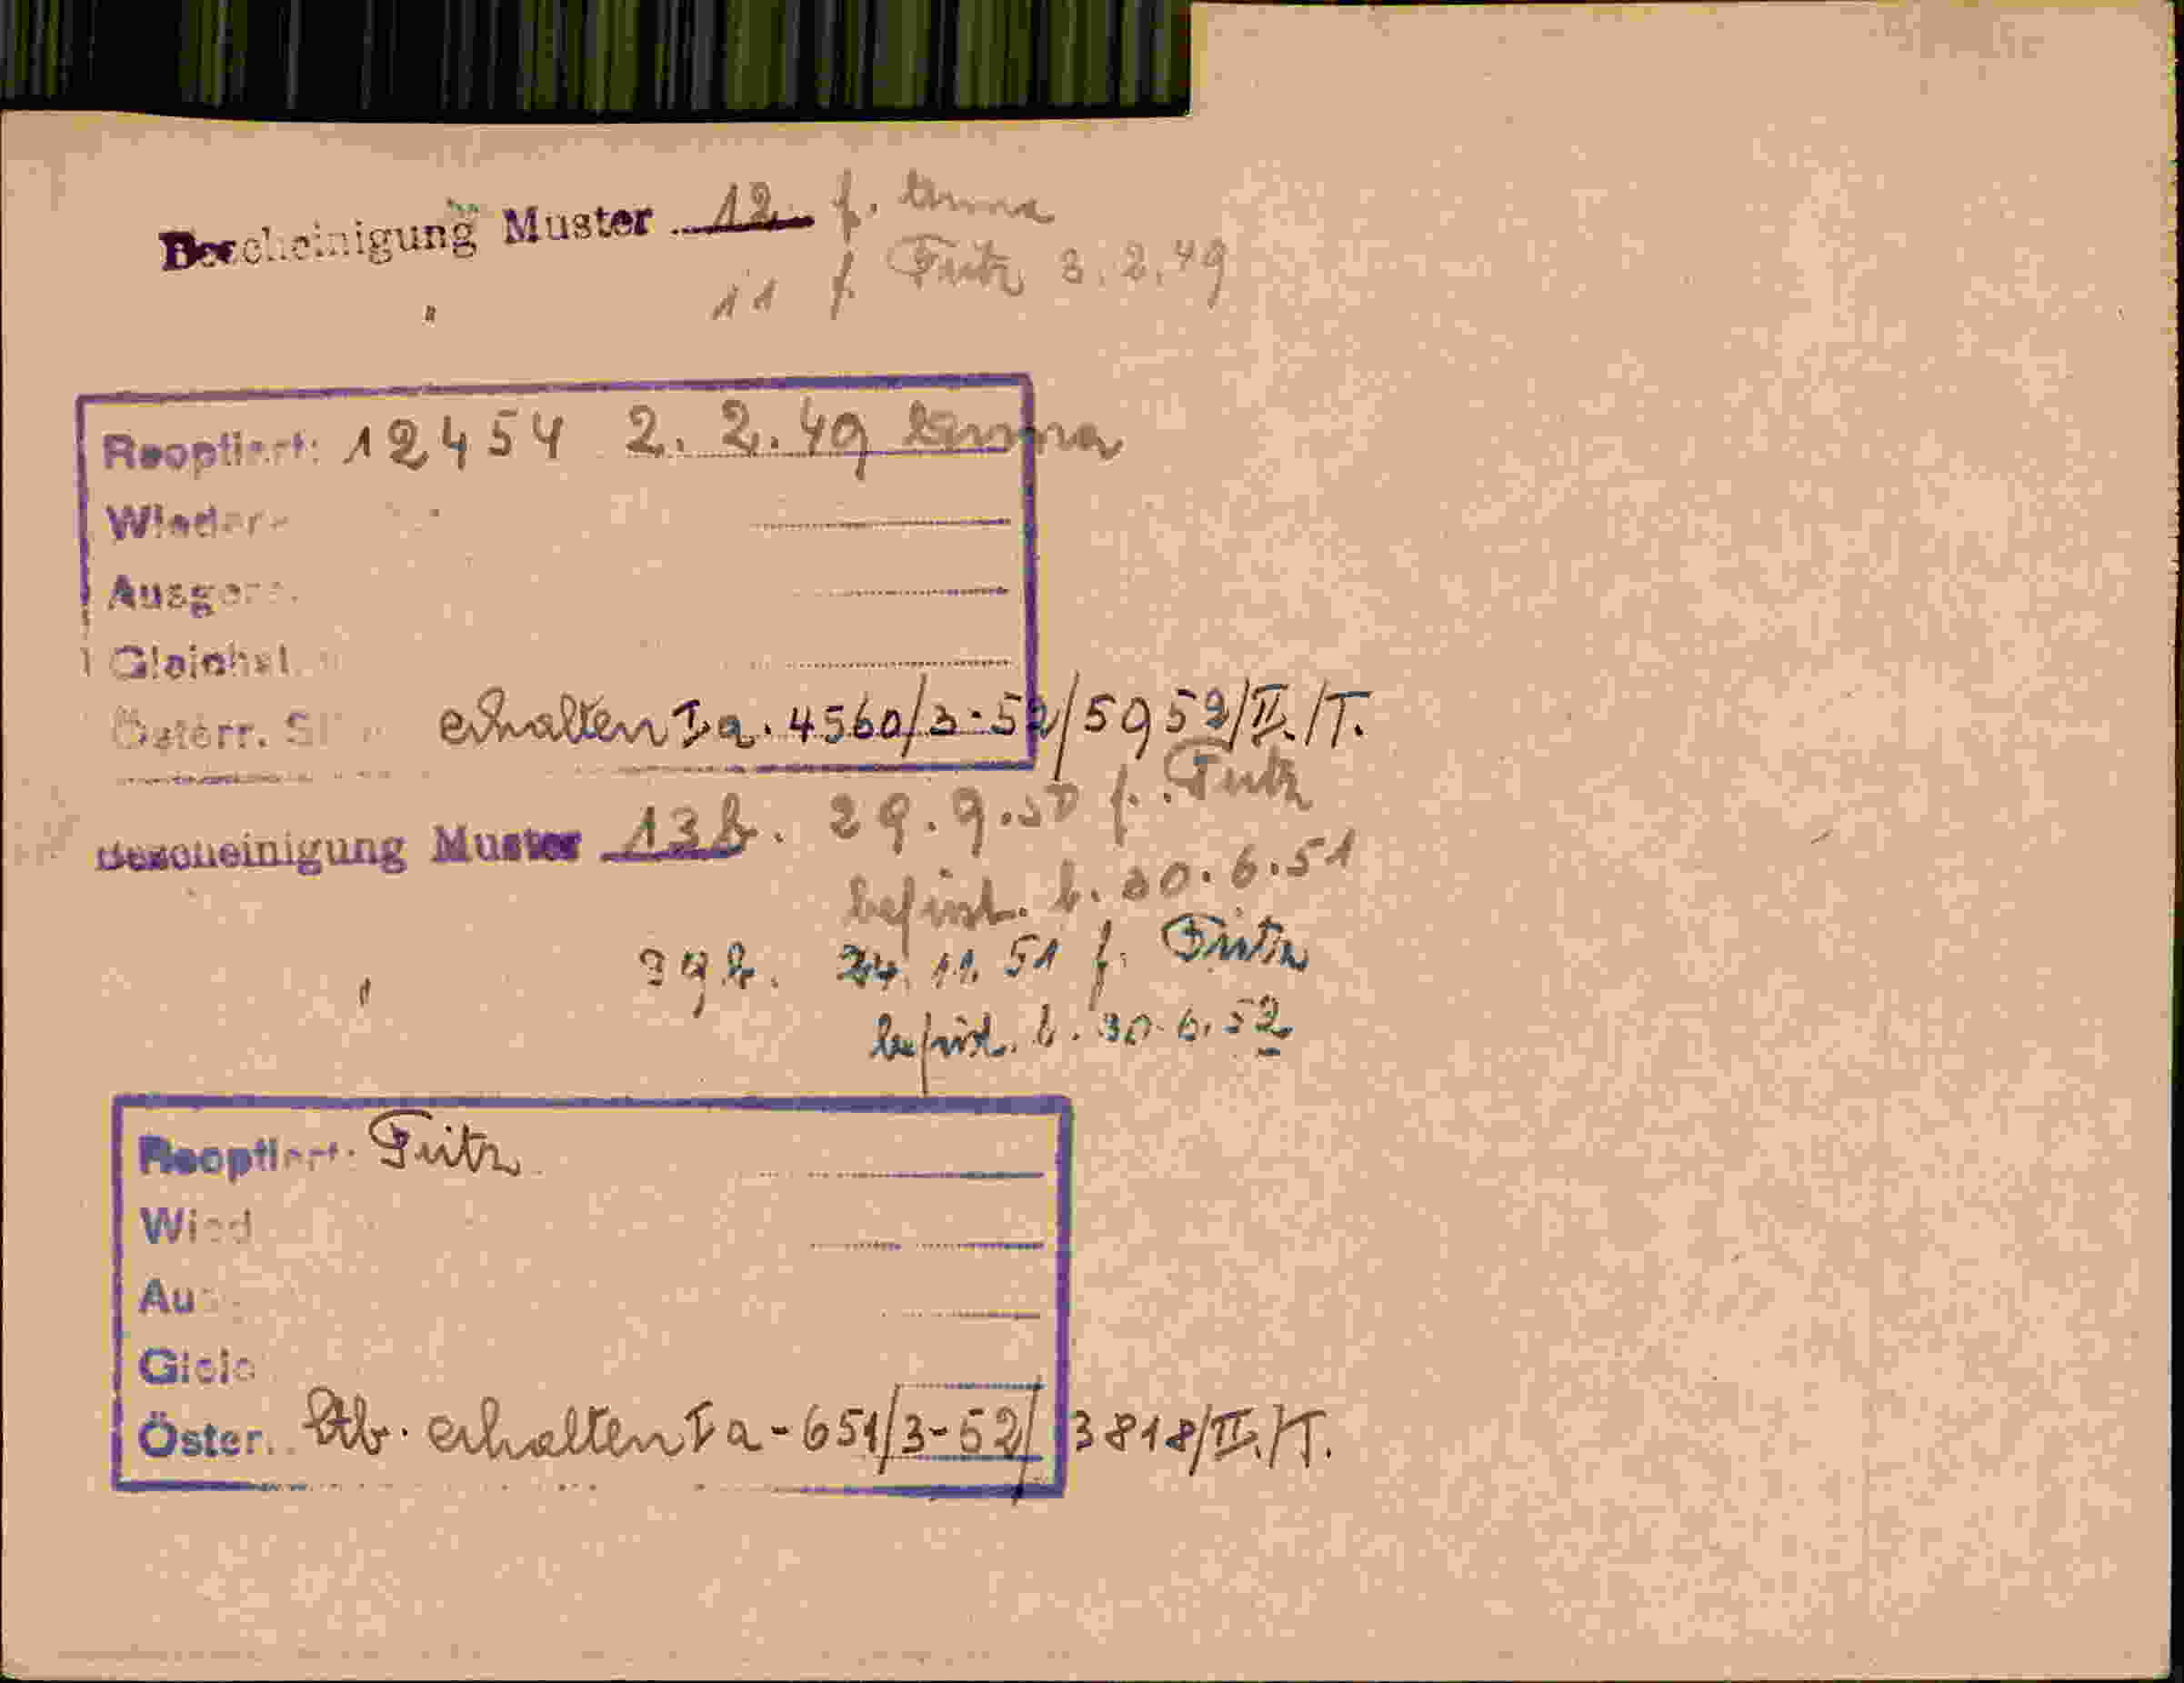 Bescheinigung Muster 12 f. Anna
" 11 f. Fritz 3.2.49
Reoptiert: 12454 2.2.49 Anna
Wieder
Ausger
Gleichst
Österr. St erhalten Ia. 4560/3-52/5952/II./T.
Bescheinigung Muster 13b. 29.9.50 f. Fritz
befrist. b. 30.6.51
24.11.51 f. Fritz
befrist. b. 30.6.52
Reoptiert: Fritz
Wied
Au
Gleic
Öster. Stb. erhalten Ia-651/3-52/3818/II./T.